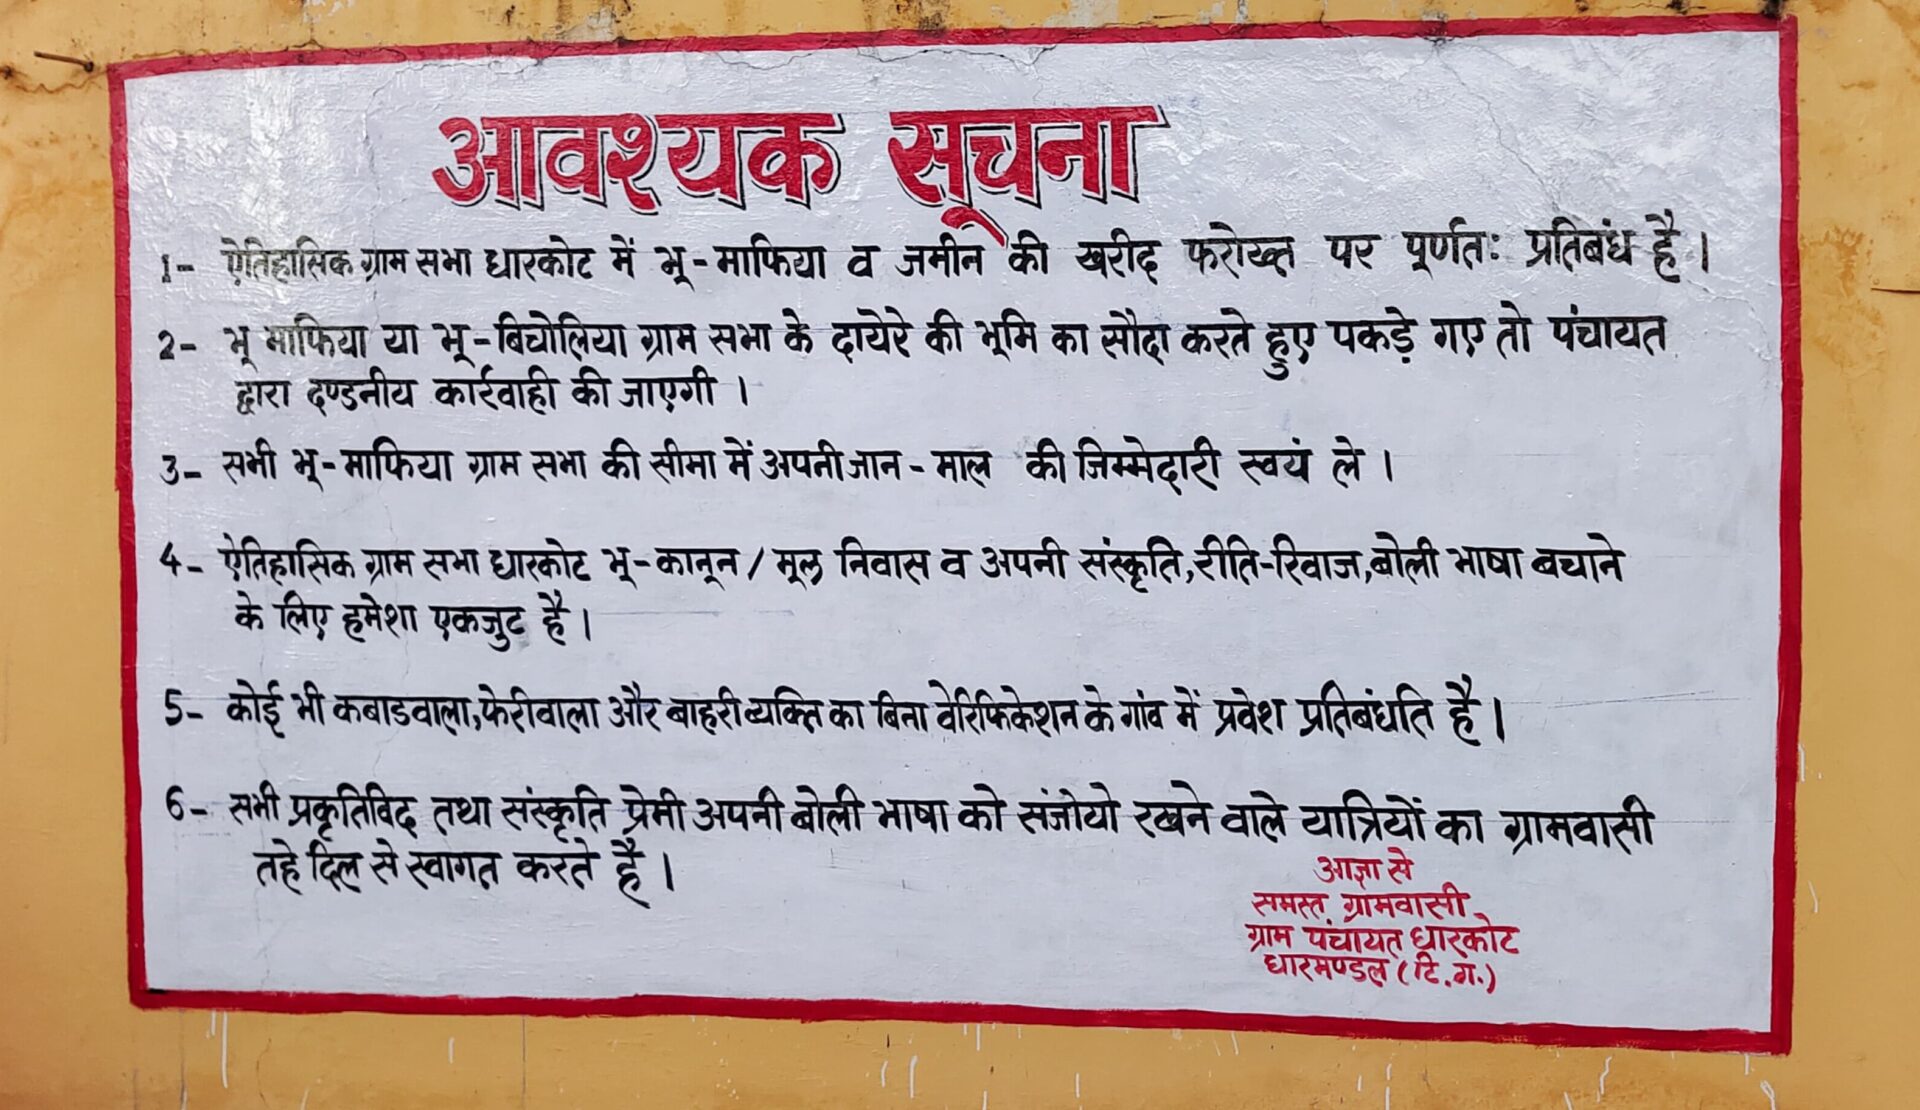 आवश्यक सूचना
1- ऐतिहासिक ग्राम सभा धारकोट में भू-माफिया व जमीन की खरीद फरोख्त पर पूर्णतः प्रतिबंध है।
2- भू माफिया या भू-बिचोलिया ग्राम सभा के दायेरे की भूमि का सौदा करते हुए पकड़े गए तो पंचायत
द्वारा दण्डनीय कार्रवाही की जाएगी ।
3- सभी भू-माफिया ग्राम सभा की सीमा में अपनी जान-माल की जिम्मेदारी स्वयं ले ।
4- ऐतिहासिक ग्राम सभा धारकोट भू-कानून / मूल निवास व अपनी संस्कृति, रीति-रिवाज, बोली भाषा बचाने
के लिए हमेशा एकजुट है।
5- कोई भी कबाडवाला, फेरीवाला और बाहरी व्यक्ति का बिना वेरिफिकेशन के गांव में प्रवेश प्रतिबंधति है।
6- सभी प्रकृतिविद तथा संस्कृति प्रेमी अपनी बोली भाषा को संजोयो रखने वाले यात्रियों का ग्रामवासी
तहे दिल से स्वागत करते है ।
आज्ञा से
समस्त ग्रामवासी
ग्राम पंचायत धारकोट
धारमण्डल (टि.ग.)